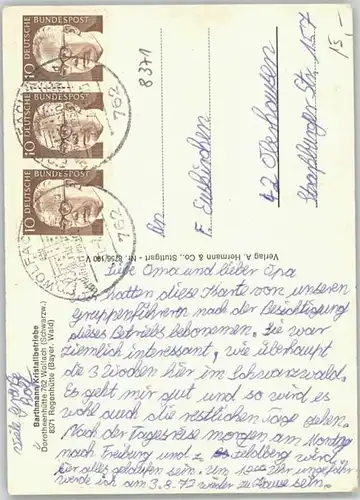 DEUTSCHE BUNDESPOST
10
DEUTSCHE BUNDESPOST
10
DEUTSCHE BUNDESPOST
10
762
762
WOLFACH
8371
15,-
An
F. Euskirchen
42 Oberhausen
Straßburger Str. 157
Verlag A. Hermann & Co., Stuttgart - Nr. 8756/190 V
Barthmann/Kristallbetriebe
Dorotheenhütte/762 Wolfach (Schwarzw.)
8371 Regenhütte (Bayer. Wald)
Liebe Oma und lieber Opa
hatten diese Karte von unseren
Gruppenführern nach der Besichtigung
dieses Betriebs bekommen. Sie war
ziemlich interessant, wie überhaupt
die 3 Wochen hier im Schwarzwald.
Es geht mir gut und so wird es
wohl auch die restlichen Tage gehen.
Nach der Tagesreise morgen am Montag
nach Freiburg und z. Feldberg wird
für alles gelaufen sein. Um 10 Uhr ungefähr
werde ich am 3.8.72 wieder zu Hause sein.
viele Grüße